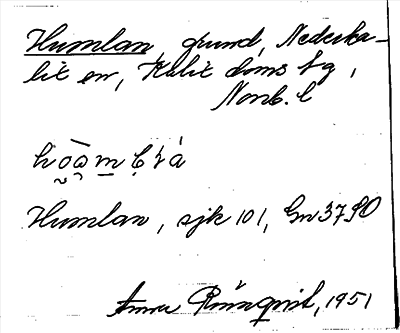 Humlan, grund, Nederka-
lix sn, Kalix doms lg,
Norrb. l
Humlan, sjk 101, Gn 3790
Rönnqvist, 1951